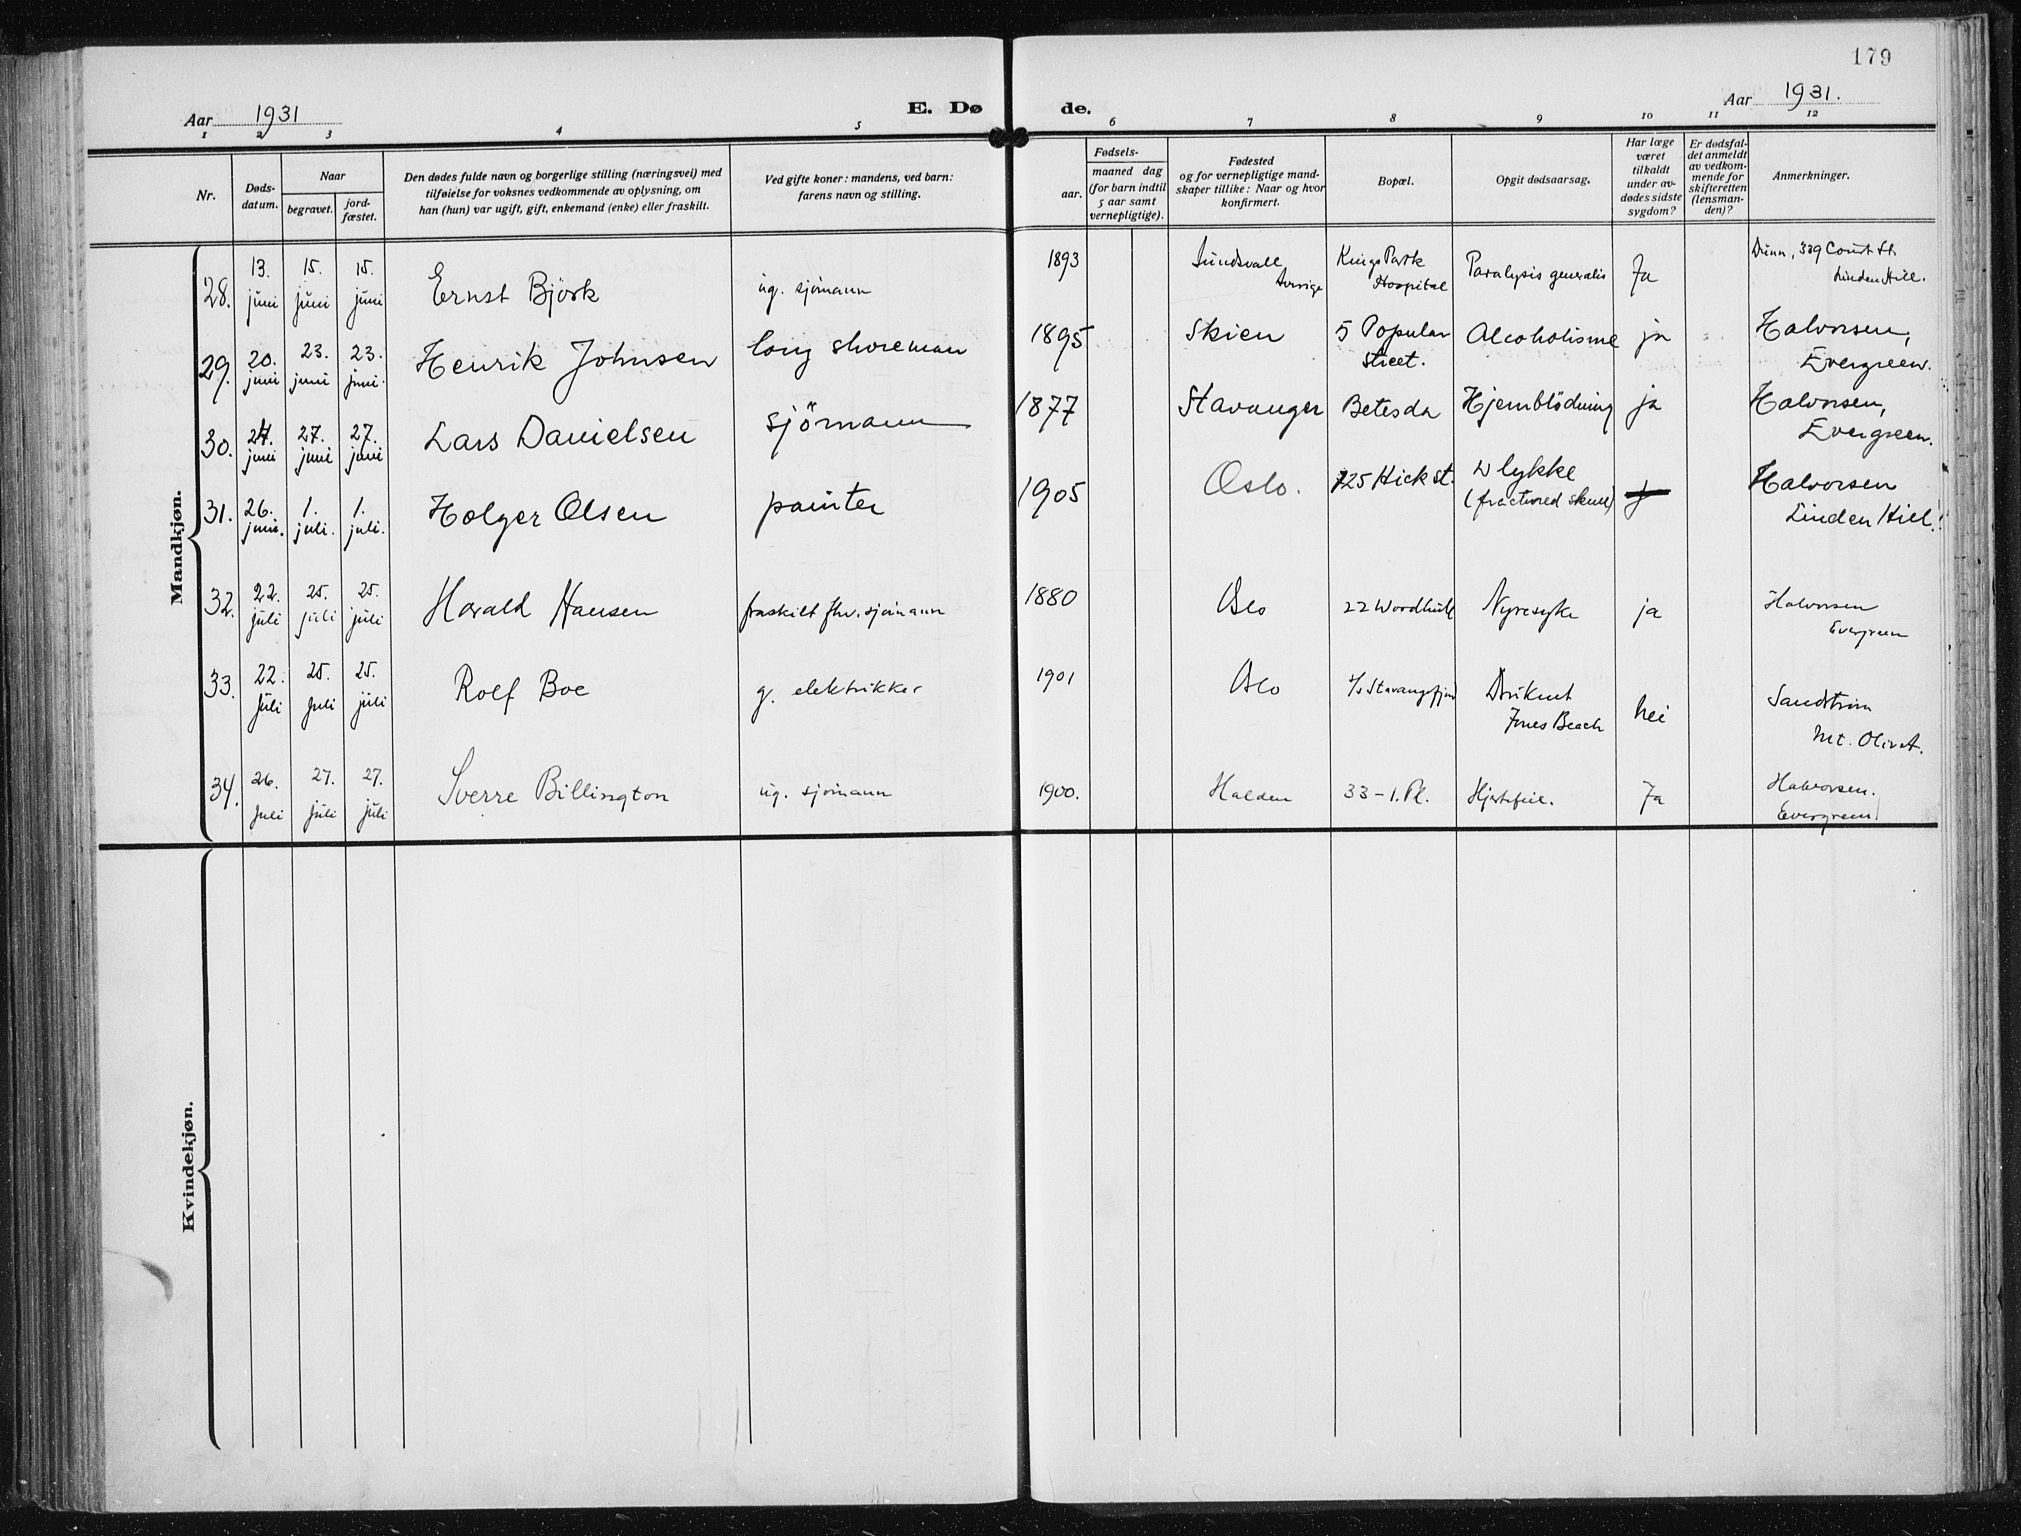 179
Aar 1931
E. Dø
de.
Aar 1931.
1 2 3 4 5 6 7 8 9 10 11 12
Nr.
Døds-
datum.
Naar
begravet.
jord-
fæstet.
Den dødes fulde navn og borgerlige stilling (næringsvei) med
tilføielse for voksnes vedkommende av oplysning, om
han (hun) var ugift, gift, enkemand (enke) eller fraskilt.
Ved gifte koner: mandens, ved barn:
farens navn og stilling.
Fødsels-
aar.
maaned dag
(for barn indtil
5 aar samt
vernepligtige).
Fødested
og for vernepligtige mand-
skaper tillike: Naar og hvor
konfirmert.
Bopæl.
Opgit dødsaarsag.
Har læge
været
tilkaldt
under av-
dødes sidste
sygdom?
Er dødsfal-
det anmeldt
av vedkom-
mende for
skifteretten
(lensman-
den)?
Anmerkninger.
Mandkjøn.
28. 13. juni 15. juni 15. juni Ernst Björk ug. sjömann 1893 Sundsvall Sverige Kings Park Hospital Paralysis generalis Ja Dunn, 339 Court St. Linden Hill.
29. 20. juni 23. juni 23. juni. Henrik Johnsen long shoreman 1895 Skien 5 Popular Street. Alcoholisme ja Halvorsen, Evergreen.
30. 24. juni 27. juni 27. juni Lars Danielsen sjömann 1877 Stavanger Betesda Hjernblödning ja Halvorsen, Evergreen.
31. 26. juni. 1. juli. 1. juli. Holger Olsen painter 1905 Oslo. 725 Hick st. Ulykke (fractured skull) Halvorsen Linden Hill.
32. 22. juli 25. juli 25. juli Harald Hansen fraskilt fhv. sjömann 1880 Oslo 22 Nyresyke ja Halvorsen Evergreen
33. 22. Juli 25. Juli 25. juli Rolf Boe g. elektrikker 1901 Oslo Stavangfjord Druknet Jones Beach nei Sandström Mt. Olivet.
34. 26. Juli 27. juli 27. juli Sverre Billington ug. sjömann 1900. Halden 33 – 1. Pl. Hjertefeil. Ja Halvorsen. Evergreen
Kvindekjøn.